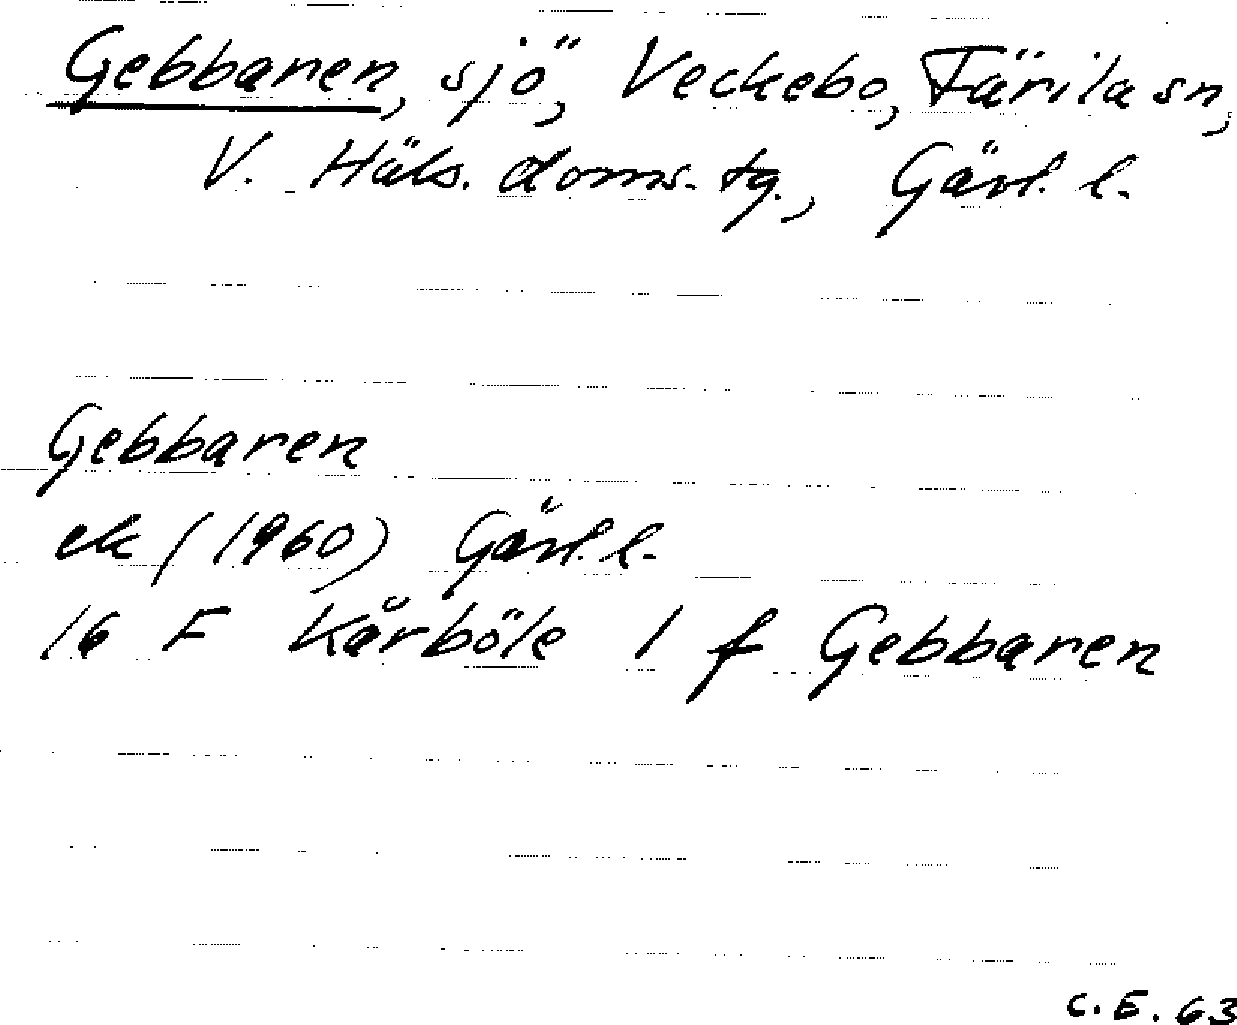 Gebbaren, sjö, Veckebo, Färila sn,
V. Häls. doms. tg., Gävl. l.
Gebbaren
ek (1960) Gävl. l.
16 F Kårböle 1 f Gebbaren
C. E. 63